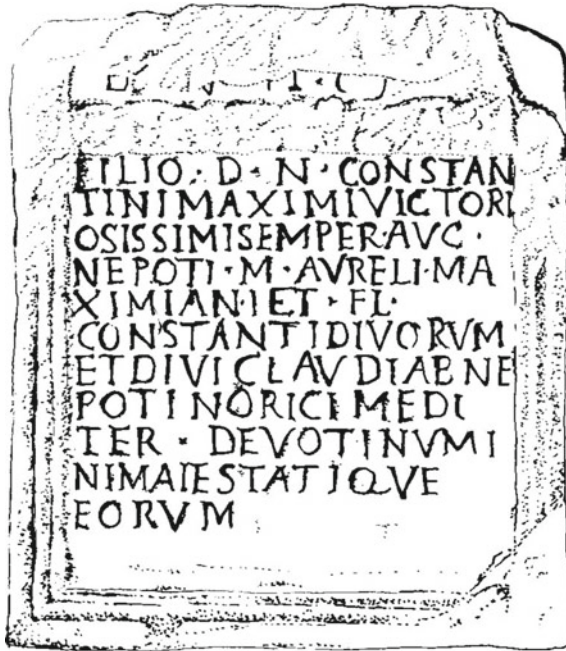 FILIO · D · N · CONSTAN
TINI MAXIMI VICTORI
OSISSIMI SEMPER · AVC ·
NEPOTI · M · AVRELI · MA
XIMIANI ET · FL ·
CONSTANTI DIVORVM
ET DIVI CLAVDI ABNE
POTI NORICI MEDI
TER · DEVOTI NVMI
NI MAIESTATIQVE
EORVM